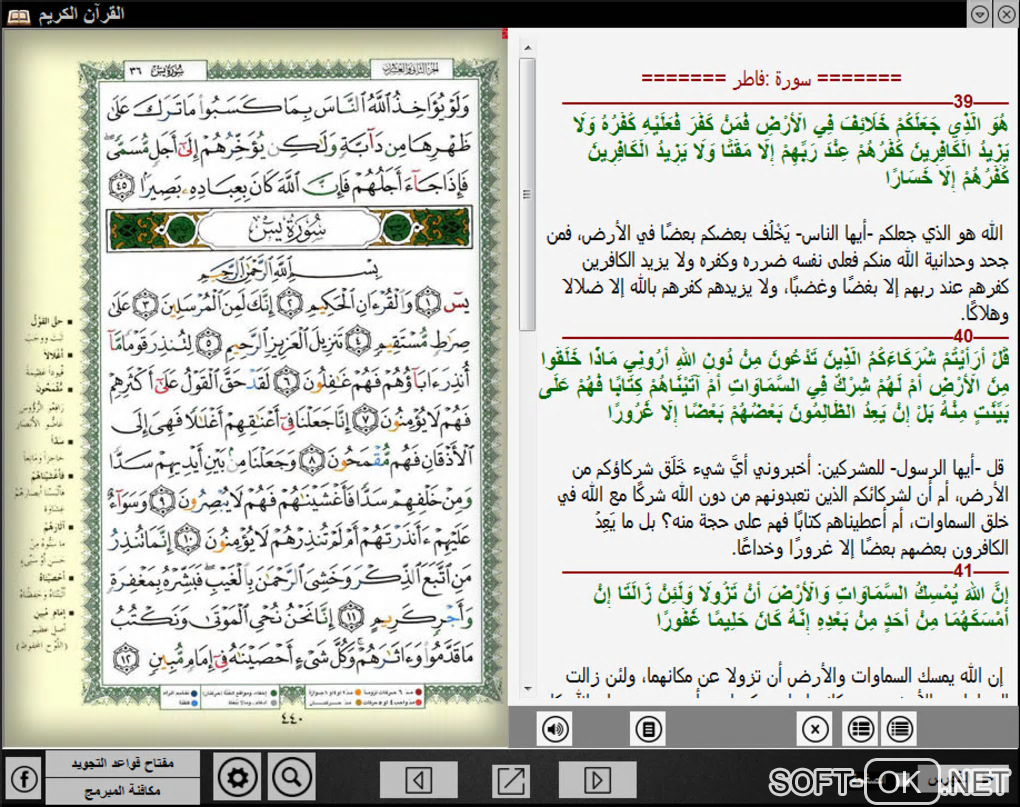 القرآن الكريم
سورة يس ٣٦
الجزء الثاني والعشرون
وَلَوْ يُؤَاخِذُ اللَّهُ النَّاسَ بِمَا كَسَبُوا مَا تَرَكَ عَلَىٰ
ظَهْرِهَا مِن دَآبَّةٍ وَلَٰكِن يُؤَخِّرُهُمْ إِلَىٰٓ أَجَلٍ مُّسَمًّى ۖ
فَإِذَا جَآءَ أَجَلُهُمْ فَإِنَّ اللَّهَ كَانَ بِعِبَادِهِۦ بَصِيرًۢا ٤٥
سُورَةُ يسٓ
بِسْمِ اللَّهِ الرَّحْمَٰنِ الرَّحِيمِ
يسٓ ١ وَالْقُرْءَانِ الْحَكِيمِ ٢ إِنَّكَ لَمِنَ الْمُرْسَلِينَ ٣ عَلَىٰ
صِرَٰطٍ مُّسْتَقِيمٍ ٤ تَنزِيلَ الْعَزِيزِ الرَّحِيمِ ٥ لِتُنذِرَ قَوْمًا مَّآ
أُنذِرَ ءَابَآؤُهُمْ فَهُمْ غَٰفِلُونَ ٦ لَقَدْ حَقَّ الْقَوْلُ عَلَىٰٓ أَكْثَرِهِمْ
فَهُمْ لَا يُؤْمِنُونَ ٧ إِنَّا جَعَلْنَا فِىٓ أَعْنَٰقِهِمْ أَغْلَٰلًا فَهِىَ إِلَى
الْأَذْقَانِ فَهُم مُّقْمَحُونَ ٨ وَجَعَلْنَا مِنۢ بَيْنِ أَيْدِيهِمْ سَدًّا
وَمِنْ خَلْفِهِمْ سَدًّا فَأَغْشَيْنَٰهُمْ فَهُمْ لَا يُبْصِرُونَ ٩ وَسَوَآءٌ
عَلَيْهِمْ ءَأَنذَرْتَهُمْ أَمْ لَمْ تُنذِرْهُمْ لَا يُؤْمِنُونَ ١٠ إِنَّمَا تُنذِرُ
مَنِ اتَّبَعَ الذِّكْرَ وَخَشِىَ الرَّحْمَٰنَ بِالْغَيْبِ ۖ فَبَشِّرْهُ بِمَغْفِرَةٍ
وَأَجْرٍ كَرِيمٍ ١١ إِنَّا نَحْنُ نُحْىِ الْمَوْتَىٰ وَنَكْتُبُ
مَا قَدَّمُوا وَءَاثَٰرَهُمْ ۚ وَكُلَّ شَىْءٍ أَحْصَيْنَٰهُ فِىٓ إِمَامٍ مُّبِينٍ ١٢
٤٤٠
حق القول
ثبت ووجب
أغلالاً
قيوداً عظيمة
مقمحون
رافعو الرؤوس
غاضو الأبصار
سداً
حاجزاً ومانعاً
فأغشيناهم
فألبسنا أبصارهم
غشاوة
آثارهم
ما سنوه من
حسن أو سيئ
أحصيناه
أثبتناه وحفظناه
إمام مبين
أصل عظيم
(اللوح المحفوظ)
======= سورة :فاطر =======
39
هُوَ الَّذِي جَعَلَكُمْ خَلَائِفَ فِي الْأَرْضِ فَمَنْ كَفَرَ فَعَلَيْهِ كُفْرُهُ وَلَا
يَزِيدُ الْكَافِرِينَ كُفْرُهُمْ عِنْدَ رَبِّهِمْ إِلَّا مَقْتًا وَلَا يَزِيدُ الْكَافِرِينَ
كُفْرُهُمْ إِلَّا خَسَارًا
الله هو الذي جعلكم -أيها الناس- يَخْلُف بعضكم بعضًا في الأرض، فمن
جحد وحدانية الله منكم فعلى نفسه ضرره وكفره ولا يزيد الكافرين
كفرهم عند ربهم إلا بغضًا وغضبًا، ولا يزيدهم كفرهم بالله إلا ضلالا
وهلاكًا.
40
قُلْ أَرَأَيْتُمْ شُرَكَاءَكُمُ الَّذِينَ تَدْعُونَ مِنْ دُونِ اللَّهِ أَرُونِي مَاذَا خَلَقُوا
مِنَ الْأَرْضِ أَمْ لَهُمْ شِرْكٌ فِي السَّمَاوَاتِ أَمْ آتَيْنَاهُمْ كِتَابًا فَهُمْ عَلَى
بَيِّنَتٍ مِنْهُ بَلْ إِنْ يَعِدُ الظَّالِمُونَ بَعْضُهُمْ بَعْضًا إِلَّا غُرُورًا
قل -أيها الرسول- للمشركين: أخبروني أيَّ شيء خَلَق شركاؤكم من
الأرض، أم أن لشركائكم الذين تعبدونهم من دون الله شركًا مع الله في
خلق السماوات، أم أعطيناهم كتابًا فهم على حجة منه؟ بل ما يَعِدُ
الكافرون بعضهم بعضًا إلا غرورًا وخداعًا.
41
إِنَّ اللَّهَ يُمْسِكُ السَّمَاوَاتِ وَالْأَرْضَ أَنْ تَزُولَا وَلَئِنْ زَالَتَا إِنْ
أَمْسَكَهُمَا مِنْ أَحَدٍ مِنْ بَعْدِهِ إِنَّهُ كَانَ حَلِيمًا غَفُورًا
إن الله يمسك السماوات والأرض أن تزولا عن مكانهما، ولئن زالت
مفتاح قواعد التجويد
مكافئة المبرمج
SOFT-OK.NET